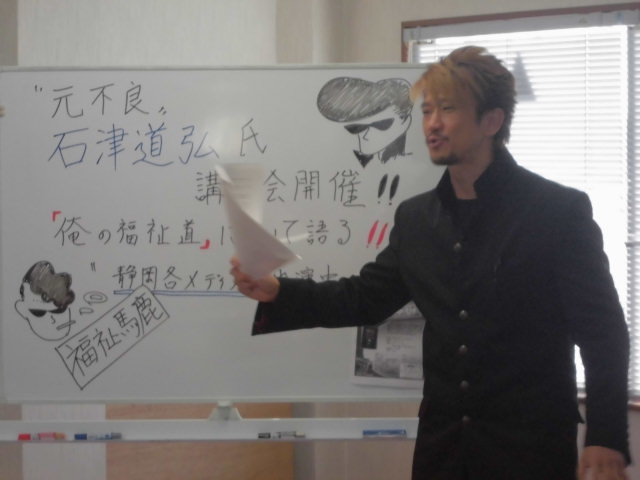 〝元不良〟
石津道弘氏
講 会開催!!
『俺の福祉道』に て語る!!
静岡各メディ
福祉馬鹿